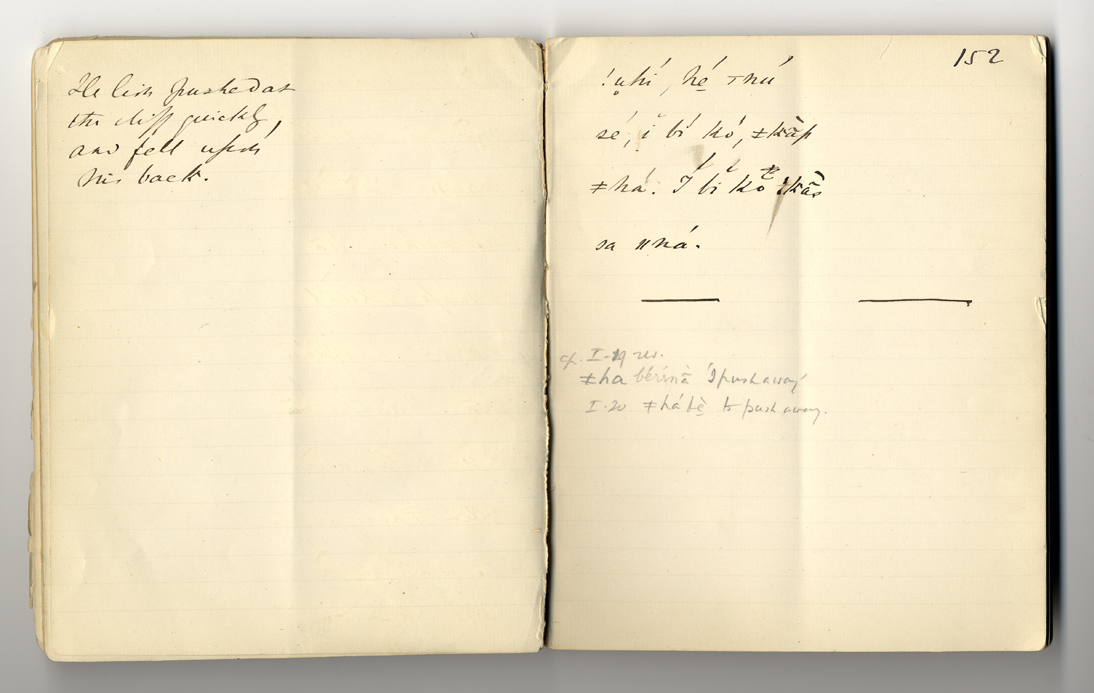 He lion pushed at
the cliff quickly,
and fell upon
his back.
152
!ụhí, hé тnú
sé, ĭ bĭ kó, ǂkã̀p
ǂhá. Ĭ bĭ kŏ ǂkã̀s
sa ǁná.
cf. I.
ǂha bérinà I push away
I. 20 ǂhábè to push away.